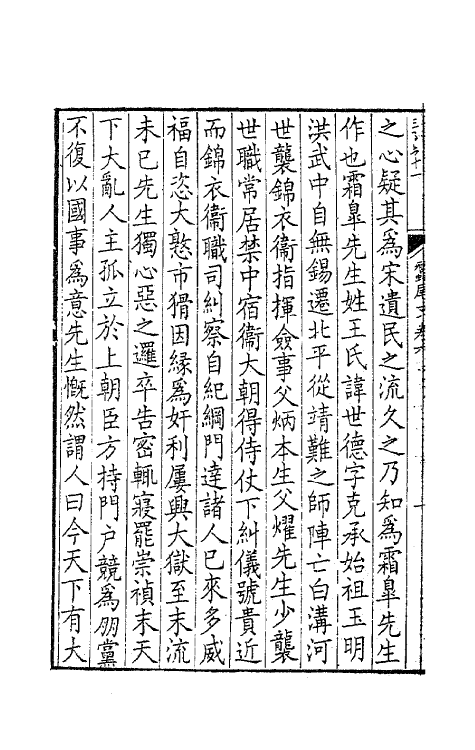 之心疑其爲宋遺民之流久之乃知爲霜臯先生
作也霜臯先生姓王氏諱世德字克承始祖玉明
洪武中自無錫遷北平從靖難之師陣亡白溝河
世襲錦衣衞指揮僉事父炳本生父燿先生少襲
世職常居禁中宿衞大朝得侍仗下糾儀號貴近
而錦衣衞職司糾察自紀綱門達諸人已來多威
福自恣大憝市猾因緣爲奸利屢興大獄至末流
未已先生獨心惡之邏卒告密輒寢罷崇禎末天
下大亂人主孤立於上朝臣方持門户競爲朋黨
不復以國事爲意先生慨然謂人曰今天下有大